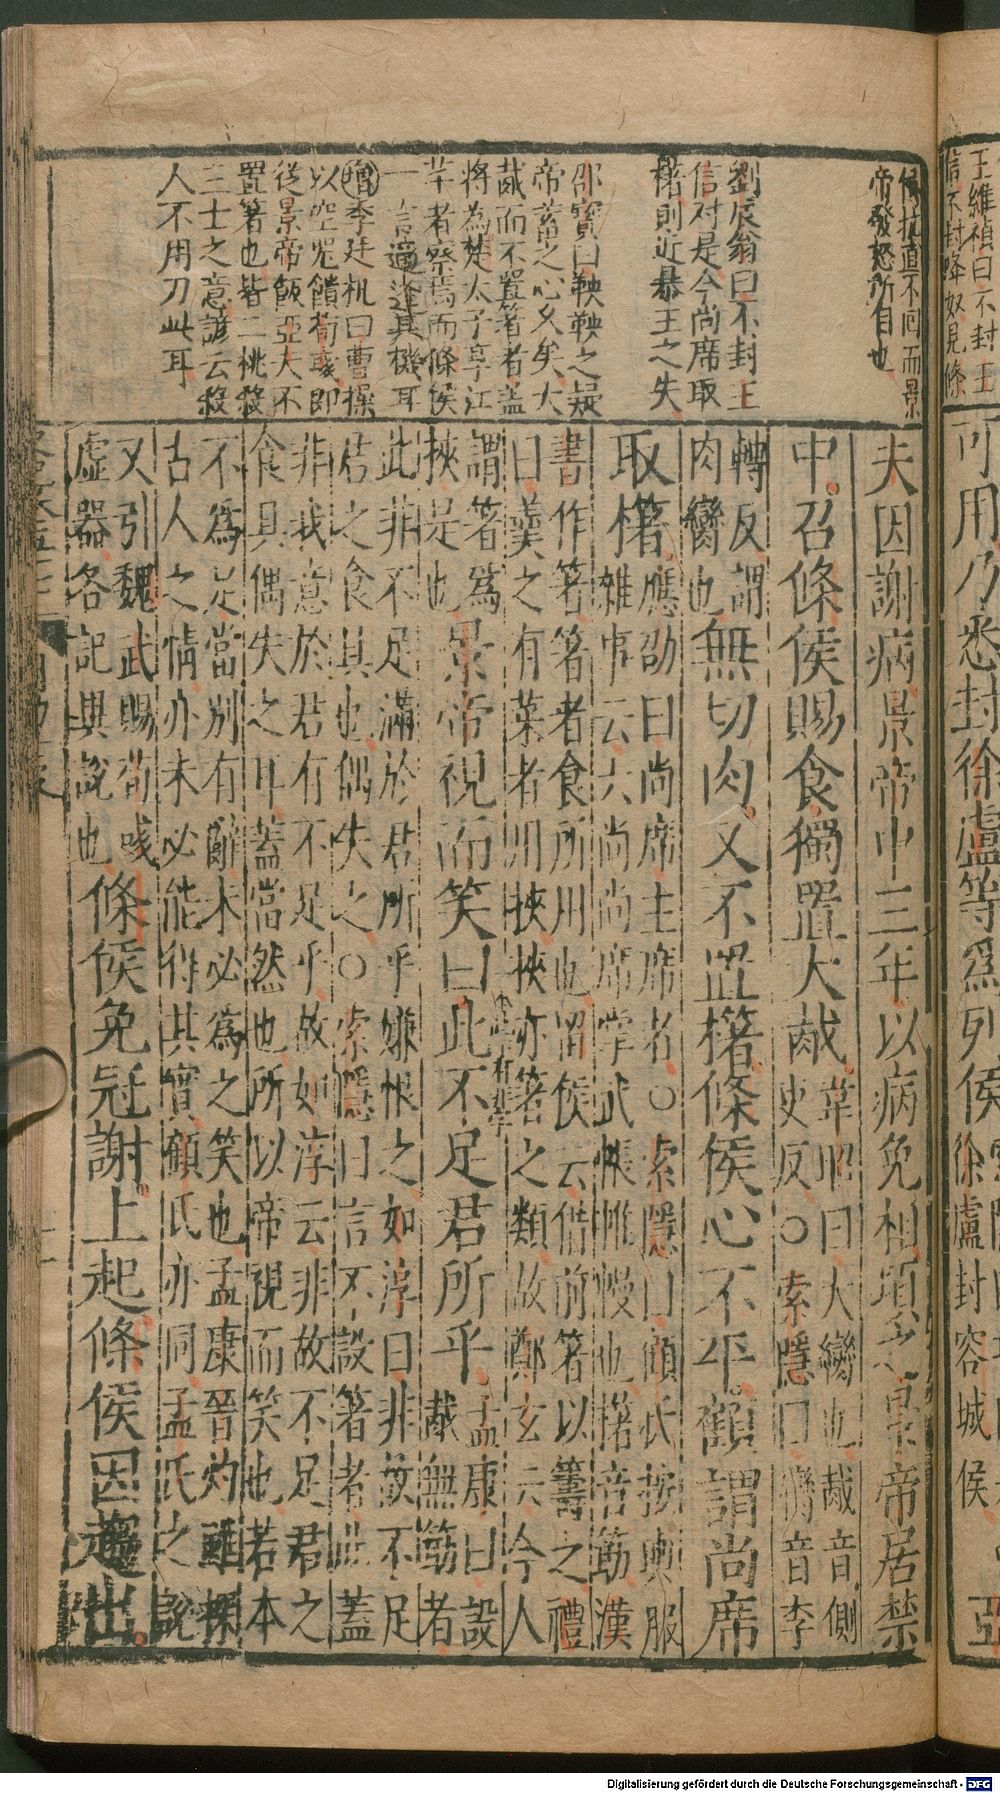 王維禎曰不封王
信不封降奴見條
侯抗直不回而景
帝發怒所自也
劉辰翁曰不封王
信対是今尚席取
櫡則近暴王之失
邵寶曰鞅鞅之疑
帝蓄之心久矣大
胾而不置箸者蓋
將為楚太子享江
羋者察焉而條侯
一言適逢其機耳
增李廷机曰曹操
以空器饋荀彧即
從景帝飯亞夫不
置箸也皆二桃殺
三士之意諺云殺
人不用刀此耳
可用乃悉封徐盧等爲列侯
徐盧封容城侯
亞
夫因謝病景帝中三年以病免相頃之景帝居禁
中召條侯賜食獨置大胾
韋昭曰大臠也胾音側
吏反○索隱曰臠音李
轉反謂
肉臠也
無切肉又不置櫡條侯心不平顧謂尚席
取櫡
應劭曰尚席主席者○索隱曰顧氏按輿服
雜事云六尚尚席掌武帳帷幔也櫡音筯漢
書作箸箸者食所用也留侯云借前箸以籌之禮
曰羹之有菜者用挾挾亦箸之類故鄭玄云今人
謂箸爲
挾是也
景帝視而笑曰此不足君所乎
孟康曰設
胾無筯者
此非不足滿於君所乎嫌恨之如淳曰非故不足
君之食具也偶失之○索隱曰言不設箸者此蓋
非我意於君有不足乎故如淳云非故不足君之
食具偶失之耳蓋當然也所以帝視而笑也若本
不爲足當別有辭未必爲之笑也孟康晉灼雖探
古人之情亦未必能得其實顧氏亦同孟氏之說
又引魏武賜荀彧
虛器各記異說也
條侯免冠謝上起條侯因趨出
Digitalisierung gefördert durch die Deutsche Forschungsgemeinschaft - DFG